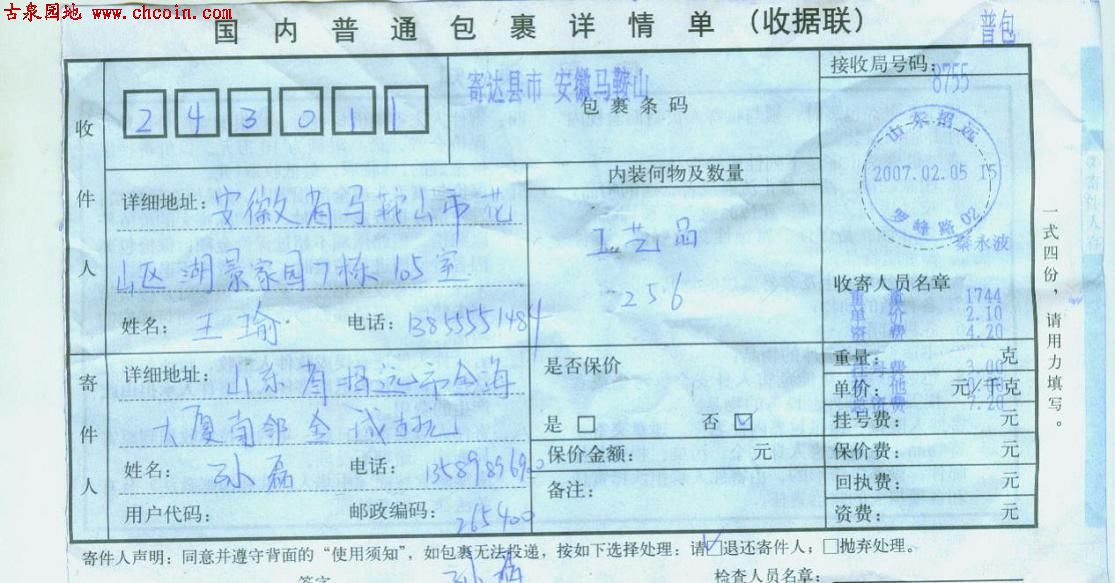 古泉园地 www.chcoin.com
国内普通包裹详情单（收据联）
普包
寄达县市 安徽马鞍山
接收局号码：
8755
243011
包裹条码
收件人
详细地址：安徽省马鞍山市花
山区湖景家园7栋105室
姓名：王瑜
电话：13855551484
内装何物及数量
工艺品
256
山东招远
2007.02.05 15
罗峰路 02
秦永波
收寄人员名章
重量 1744
单价 2.10
资费 4.20
寄件人
详细地址：山东省招远市金海
大厦南邻金城古玩
姓名：孙磊
电话：13589896900
用户代码：
邮政编码：265400
是否保价
是 否
保价金额： 元
备注：
重量： 克
3.00
单价： 元/千克
7.20
挂号费： 元
保价费： 元
回执费： 元
资费： 元
一式四份，请用力填写。
寄件人声明：同意并遵守背面的“使用须知”，如包裹无法投递，按如下选择处理：请 退还寄件人；抛弃处理。
签字
孙磊
检查人员名章：